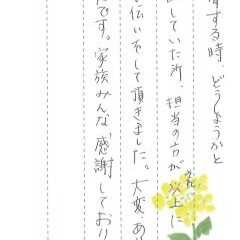 育する時、どうしようかと
していた所、担当の方が以上に
伝いをして頂きました。大変、あ
です。家族みんな、感謝しており